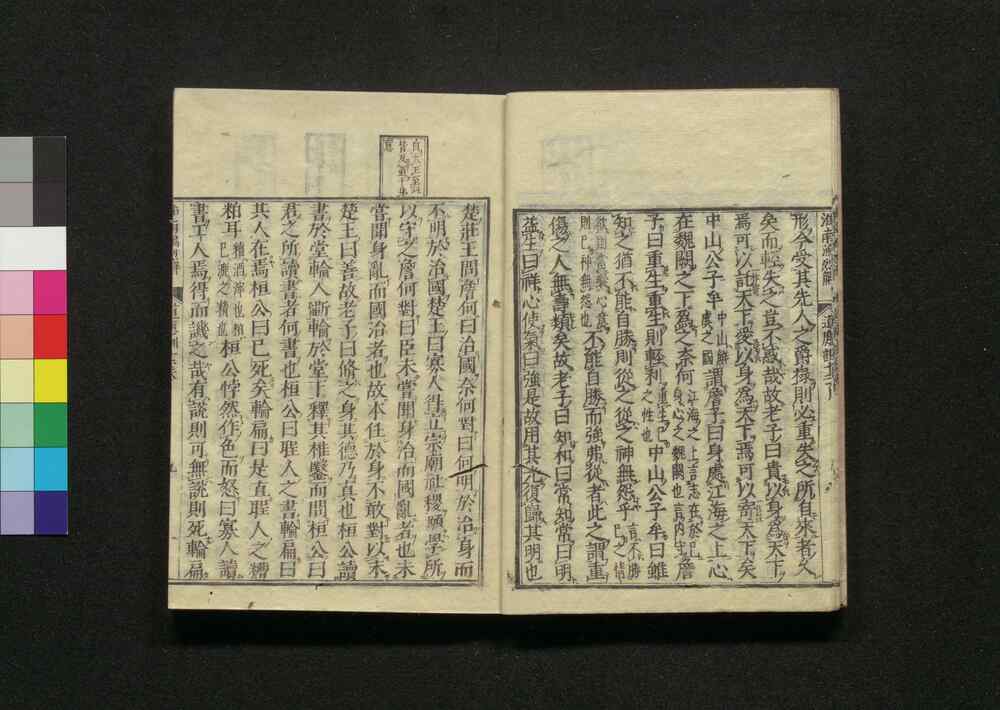 形今受其先人之爵祿則必重失之所自來者久
矣而輕失之豈不惑哉故老子曰貴以身爲天下
焉可以託天下愛以身爲天下焉可以寄天下矣
中山公子牟中山鮮虞之國謂詹子曰身處江海之上心
在魏闕之下爲之奈何江海之上言志在於己身心之魏闕也言內守詹
子曰重生重生則輕利重生之性也中山公子牟曰雖
知之猶不能自勝則從之從之神無怨乎言不勝己之情
欲則當縱心意則己神無怨也不能自勝而強弗從者此之謂重
傷之人無壽類矣故老子曰知和曰常知常曰明
益生曰祥心使氣曰強是故用其光復歸其明也
楚莊王問詹何曰治國奈何對曰何明於治身而
不明於治國楚王曰寡人得立宗廟社稷願學所
以守之詹何對曰臣未嘗聞身治而國亂者也未
嘗聞身亂而國治者也故本任於身不敢對以末
楚王曰善故老子曰脩之身其德乃真也桓公讀
書於堂輪人斲輪於堂下釋其椎鑿而問桓公曰
君之所讀書者何書也桓公曰聖人之書輪扁曰
其人在焉桓公曰已死矣輪扁曰是直聖人之糟
粕耳糟酒滓也粕已漉之精也桓公悖然作色而怒曰寡人讀
書工人焉得而譏之哉有說則可無說則死輪扁